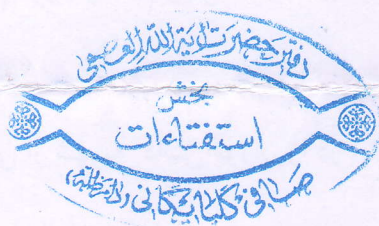 دفتر حضرت آیة الله العظمی
بخش
استفتاءات
صافی گلپایگانی دام ظله